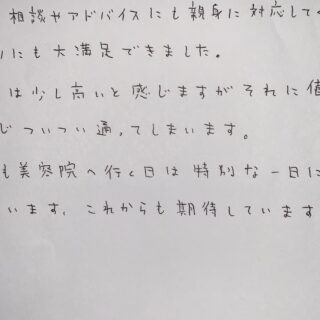 相談やアドバイスにも親身に対応して
にも大満足できました。
は少し高いと感じますがそれに値
じついつい通ってしまいます。
も美容院へ行く日は特別な一日に
います。これからも期待しています